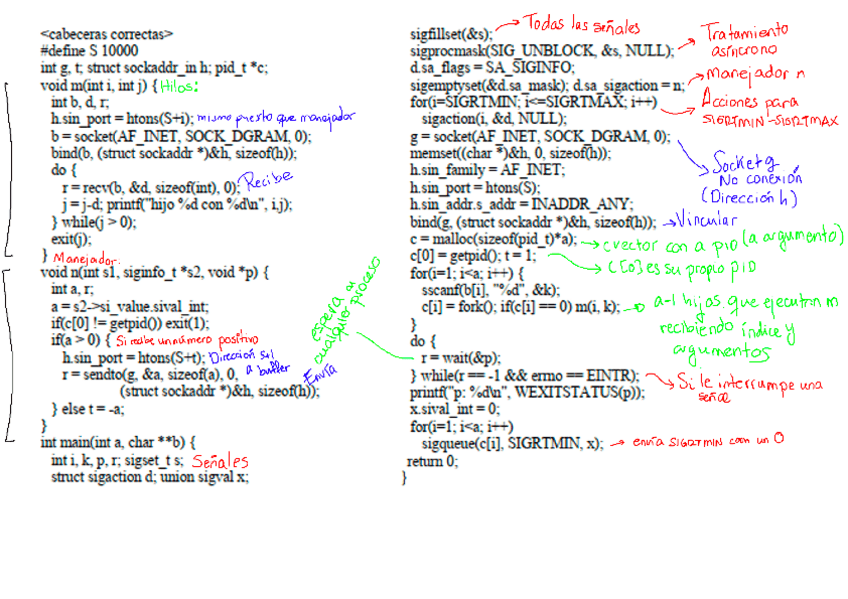 <cabeceras correctas>
#define S 10000
int g, t; struct sockaddr_in h; pid_t *c;
void m(int i, int j) { Hilos:
int b, d, r;
h.sin_port = htons(S+i); mismo puerto que manejador
b = socket(AF_INET, SOCK_DGRAM, 0);
bind(b, (struct sockaddr *)&h, sizeof(h));
do {
r = recv(b, &d, sizeof(int), 0); Recibe
j = j-d; printf("hijo %d con %d\n", i,j);
} while(j > 0);
exit(j);
} Manejador.
void n(int s1, siginfo_t *s2, void *p) {
int a, r;
a = s2->si_value.sival_int;
if(c[0] != getpid()) exit(1);
if(a > 0) { Si recibe un número positivo
h.sin_port = htons(S+t); Dirección sul
r = sendto(g, &a, sizeof(a), 0, a buffer
(struct sockaddr *)&h, sizeof(h)); Envía
} else t = -a;
}
int main(int a, char **b) {
int i, k, p, r; sigset_t s; Señales
struct sigaction d; union sigval x;
sigfillset(&s); Todas las señales
sigprocmask(SIG_UNBLOCK, &s, NULL); Tratamiento
asíncrono
d.sa_flags = SA_SIGINFO;
sigemptyset(&d.sa_mask); d.sa_sigaction = n; Manejador n
for(i=SIGRTMIN; i<=SIGRTMAX; i++) Acciones para
sigaction(i, &d, NULL); SIGRTMIN-SIGRTMAX
g = socket(AF_INET, SOCK_DGRAM, 0);
memset((char *)&h, 0, sizeof(h)); Socket g
h.sin_family = AF_INET; No conexión
h.sin_port = htons(S); (Dirección h)
h.sin_addr.s_addr = INADDR_ANY;
bind(g, (struct sockaddr *)&h, sizeof(h)); Vincular
c = malloc(sizeof(pid_t)*a); c vector con a PID (a argumento)
c[0] = getpid(); t = 1; c[0] es su propio PID
for(i=1; i<a; i++) {
sscanf(b[i], "%d", &k);
c[i] = fork(); if(c[i] == 0) m(i, k); a-1 hijos que ejecutan m
} recibiendo índice y
do { argumentos
r = wait(&p); espera a
cualquier proceso
} while(r == -1 && errno == EINTR); Si le interrumpe una
señal
printf("p: %d\n", WEXITSTATUS(p));
x.sival_int = 0;
for(i=1; i<a; i++)
sigqueue(c[i], SIGRTMIN, x); envía SIGRTMIN con un 0
return 0;
}